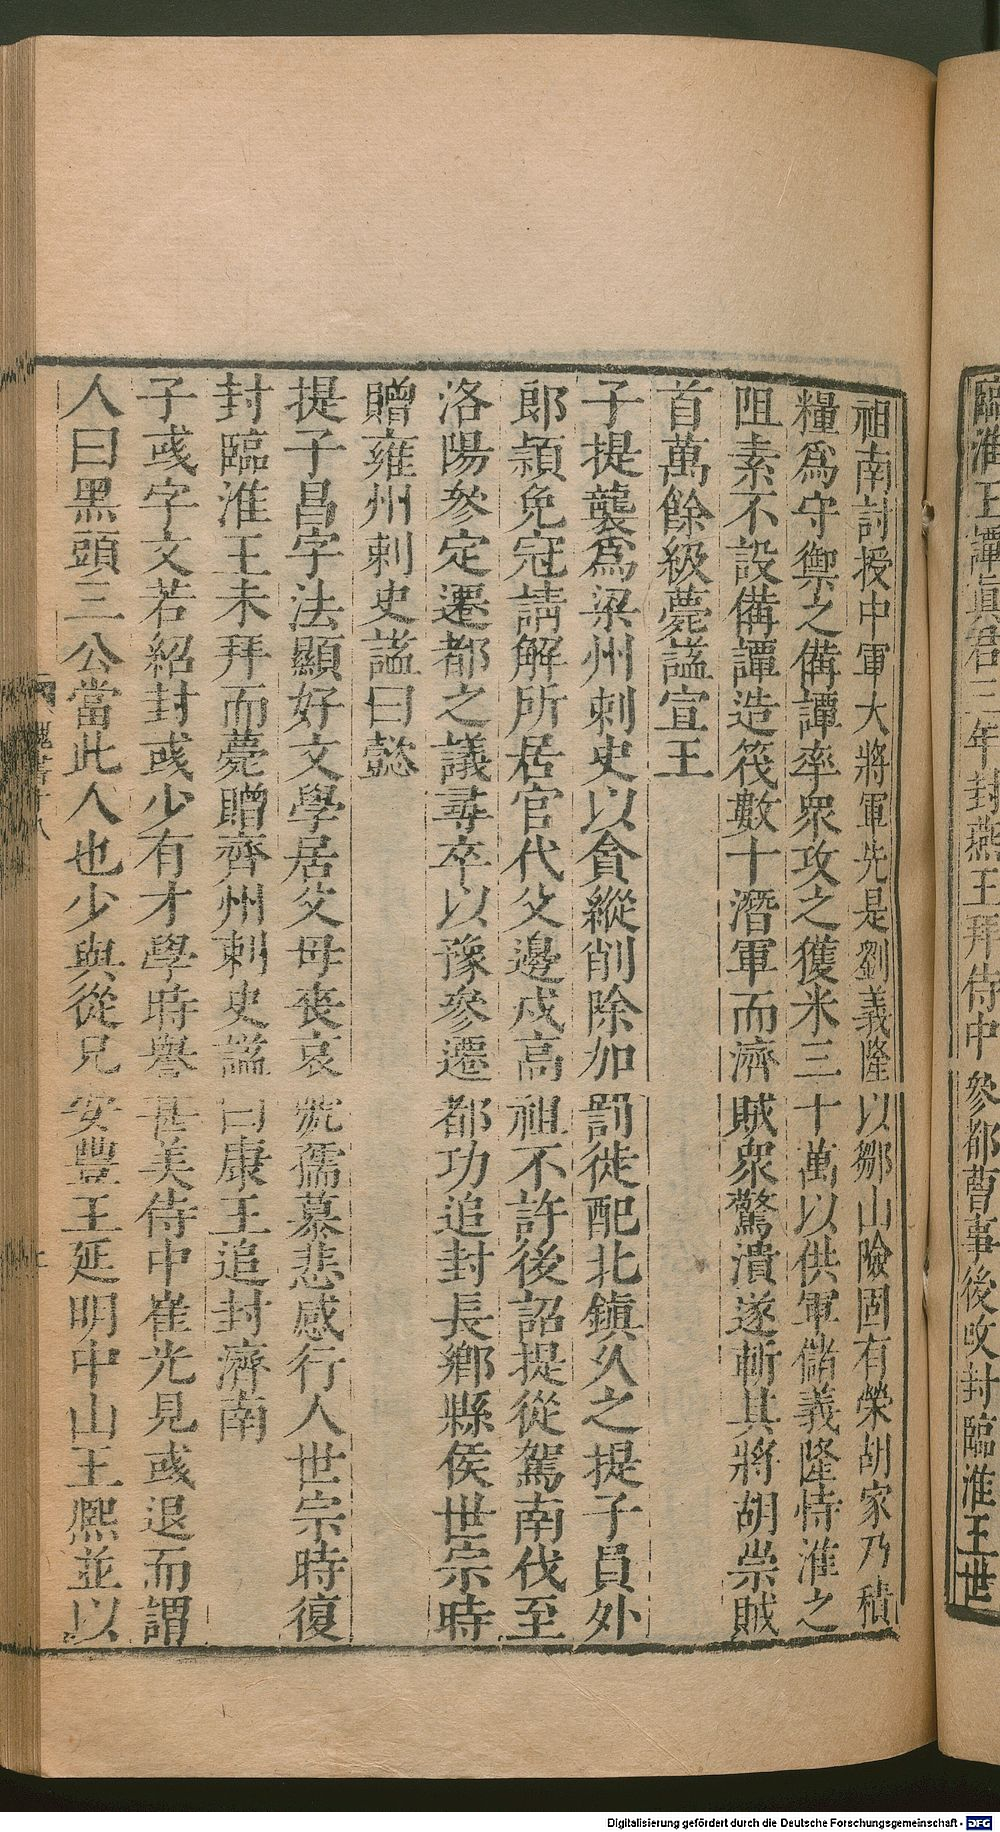 臨淮王譚眞君三年封燕王拜侍中參都曹事後改封臨淮王世
祖南討授中軍大將軍先是劉義隆以鄒山險固有榮胡家乃積
糧爲守禦之備譚率衆攻之獲米三十萬以供軍儲義隆恃淮之
阻素不設備譚造筏數十潛軍而濟賊衆驚潰遂斬其將胡崇賊
首萬餘級薨謚宣王
子提襲爲梁州刺史以貪縱削除加罰徙配北鎮久之提子員外
郎頴免冠請解所居官代父邊戍高祖不許後詔提從駕南伐至
洛陽參定遷都之議尋卒以豫參遷都功追封長鄉縣侯世宗時
贈雍州刺史謚曰懿
提子昌字法顯好文學居父母喪哀號孺慕悲感行人世宗時復
封臨淮王未拜而薨贈齊州刺史謚曰康王追封濟南
子彧字文若紹封彧少有才學時譽甚美侍中崔光見彧退而謂
人曰黑頭三公當此人也少與從兄安豐王延明中山王熙並以
魏書十八
Digitalisierung gefördert durch die Deutsche Forschungsgemeinschaft - DFG